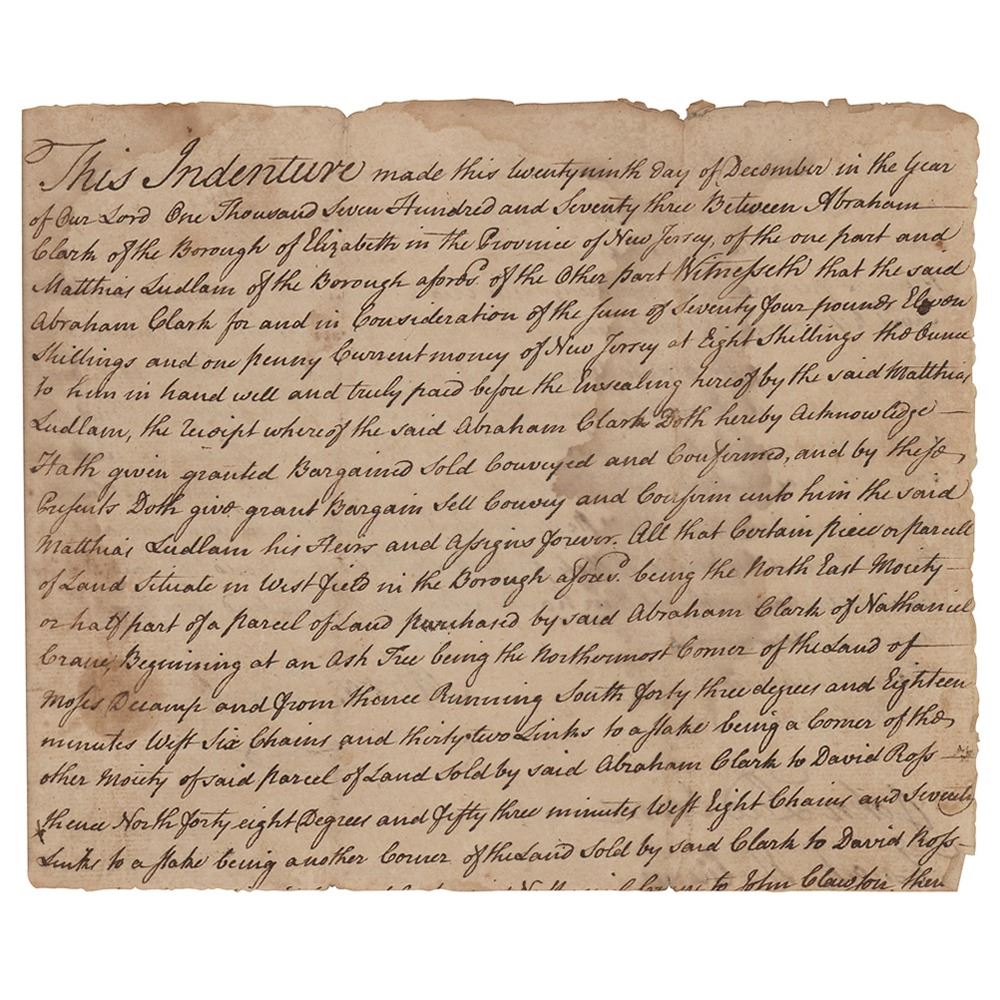 This Indenture made this twentyninth day of December in the Year
of Our Lord One Thousand Seven Hundred and Seventy three Between Abraham
Clark of the Borough of Elizabeth in the Province of New Jersey, of the one part and
Matthias Ludlam of the Borough aforesd. of the Other part Witnesseth that the said
Abraham Clark for and in Consideration of the sum of Seventy four pounds Eleven
Shillings and one penny Current money of New Jersey at Eight Shillings the Ounce
to him in hand well and truly paid before the Ensealing hereof by the said Matthias
Ludlam, the receipt whereof the said Abraham Clark Doth hereby Acknowledge
Hath given granted Bargained Sold Conveyed and Confirmed, and by these
Presents Doth give grant Bargain Sell Convey and Confirm unto him the said
Matthias Ludlam his Heirs and Assigns forever. All that Certain piece or parcell
of Land Situate in Westfield in the Borough aforesd. being the North East Moiety
or half part of a parcel of Land purchased by said Abraham Clark of Nathaniel
Crane, Beginning at an Ash Tree being the Northermost Corner of the Land of
Moses Decamp and from thence Running South forty three degrees and Eighteen
minutes West Six Chains and thirty two Links to a stake being a Corner of the
other Moiety of said parcel of Land Sold by said Abraham Clark to David Ross
thence North forty eight Degrees and fifty three minutes West Eight Chains and Seventy
Links to a stake being another Corner of the Land Sold by said Clark to David Ross
to John Clawson, then